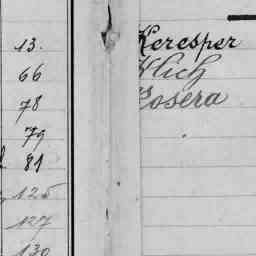 13. Keresper
66 Klich
78 Kosera
79
81
125
127
130